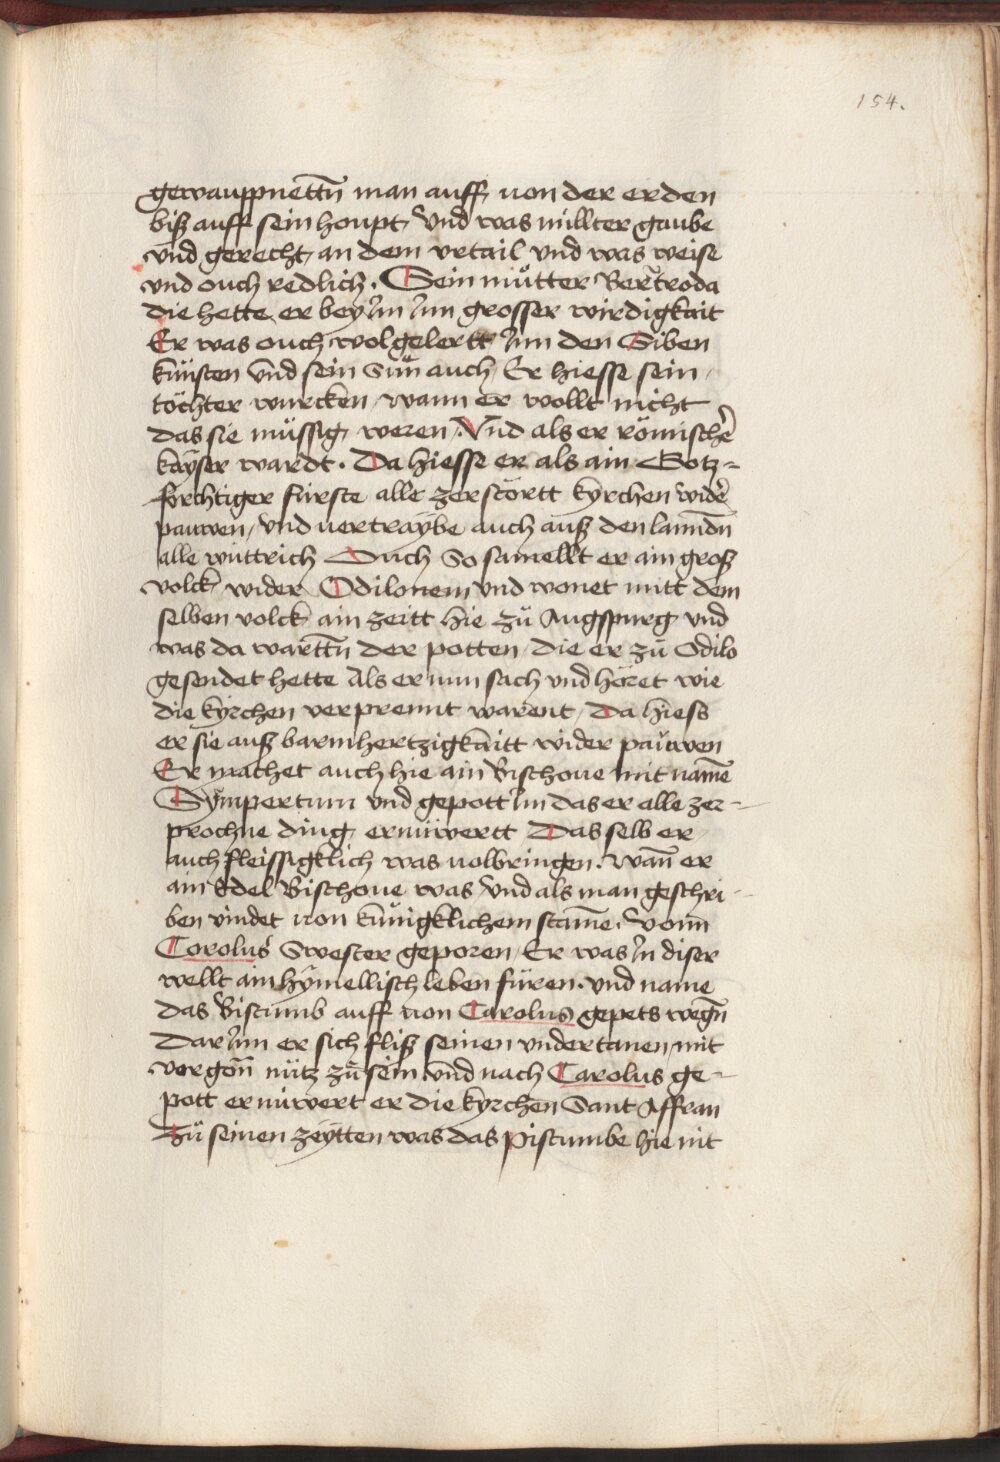 154.
gewauppnettn̄ man auff von der erden
bisz auff sein houpt, Vnd was millter gaube
vnd gerecht, an dem vrtail vnd was weise
vnd ouch redlich. Sein mu̇tter Bertroda
die hette er bey Im Inn grosser wirdigkait
Er was ouch wol gelertt Inn den Siben
ku̇nsten vnd sein Sün auch, Er hiesse sein
töchter wurcken, wann er wollt nicht
das sie müssig weren. Vnd als er römischer̄
kayser wardt. Da hiesse er als ain Gotz=
forchtiger fürste alle zerstörtt kyrchen wider̄
pauwen, vnd vertraybe auch ausz den lanndn̄
alle wüttrich Ouch So samellt er ain grosz
volck wider Odilonem vnd wonet mitt dem
selben volck ain zeitt hie zu̇ Augspurg vnd
was da warttn̄ der potten, die er zu̇ Odilo
gesendet hette Als er nun sach vnd höret wie
die kyrchen verprennt warent, Da hiess
er sie ausz barmhertzigkaitt wider pauwen
Er machet auch hie ain Bischoue mit name̅
Sympertum vnd gepott Im das er alle zer-
prochne ding, ernüwertt Das selb er
auch fleissigklich was volbringen. wan̄ er
ain Edel Bischoue was vnd als man geschri-
ben vindet von kunigklichem stam̄e, Vonn̄
Carolus Swester geporen, Er was In diser
wellt ain hymellisch leben füren. vnd name
das Bistumb auff von Carolus gepets wegn̄
Dar Inn er sich flisz seinen vndertanen, mit
vergon̄ nütz zu̇ sein. vnd nach Carolus ge-
pott ernüwert er die kyrchen Sant Affran
Zu̇ seinen zeytten was das Pistumbe hie nit